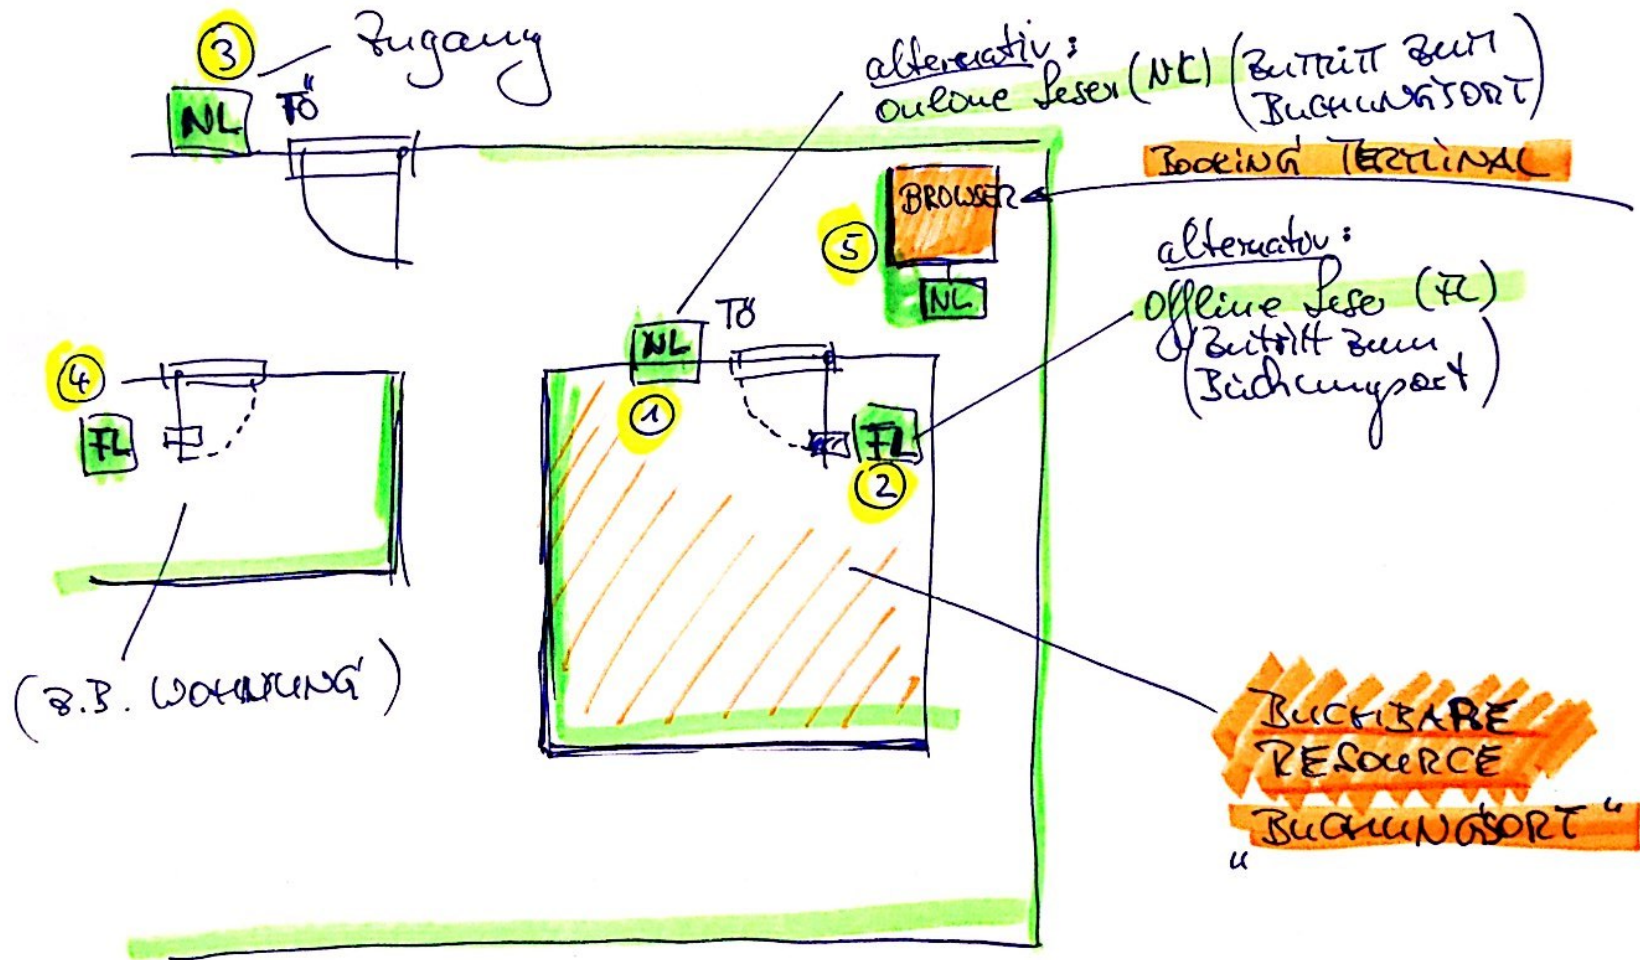 3
Zugang
NL
TÖ
alternativ:
online Leser (NL) (ZUTRITT ZUM
BUCHUNGSORT)
BOOKING TERMINAL
BROWSER
5
NL
alternativ:
Offline Leser (FL)
(Zutritt zum
Buchungsort)
NL
TÖ
1
FL
2
4
FL
(Z.B. WOHNUNG)
BUCHBARE
RESOURCE
"BUCHUNGSORT"